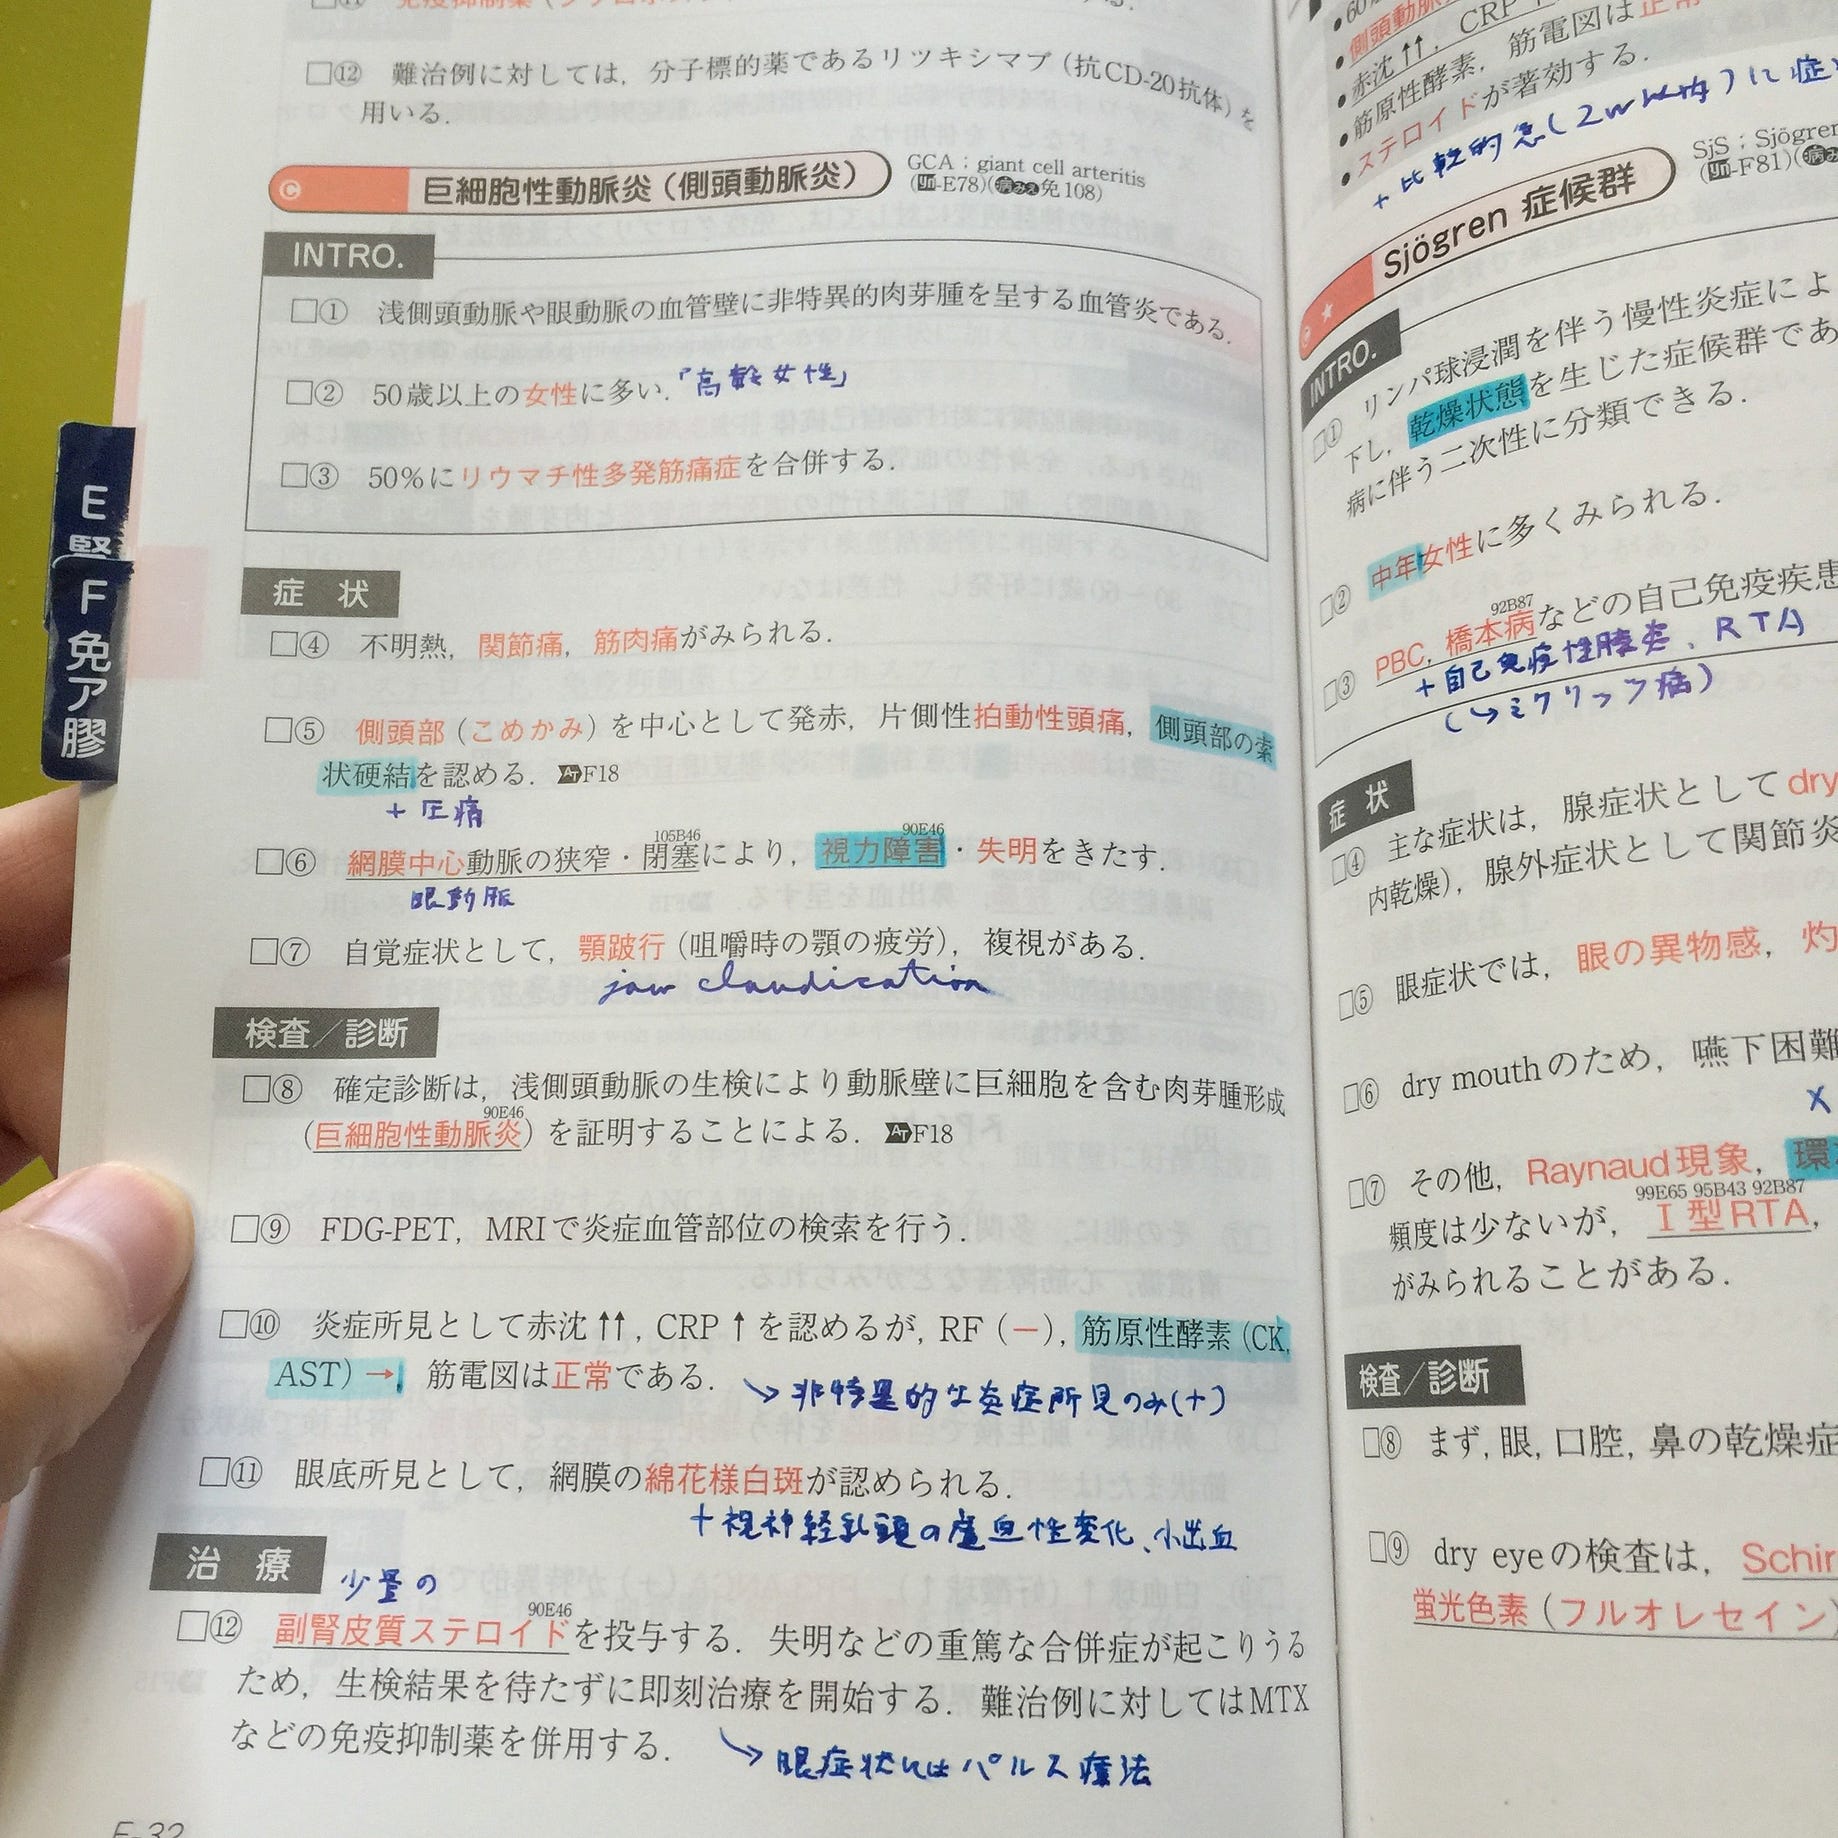 □⑫ 難治例に対しては，分子標的薬であるリツキシマブ（抗CD-20抗体）を
用いる．
C 巨細胞性動脈炎（側頭動脈炎）
GCA：giant cell arteritis
(yn-E78)(病みえ免108)
INTRO.
□① 浅側頭動脈や眼動脈の血管壁に非特異的肉芽腫を呈する血管炎である．
□② 50歳以上の女性に多い．「高齢女性」
□③ 50％にリウマチ性多発筋痛症を合併する．
症 状
□④ 不明熱，関節痛，筋肉痛がみられる．
□⑤ 側頭部（こめかみ）を中心として発赤，片側性拍動性頭痛，側頭部の索
状硬結を認める．AT F18
＋圧痛
105B46 90E46
□⑥ 網膜中心動脈の狭窄・閉塞により，視力障害・失明をきたす．
眼動脈
□⑦ 自覚症状として，顎跛行（咀嚼時の顎の疲労），複視がある．
jaw claudication
検査／診断
□⑧ 確定診断は，浅側頭動脈の生検により動脈壁に巨細胞を含む肉芽腫形成
90E46
（巨細胞性動脈炎）を証明することによる．AT F18
□⑨ FDG-PET，MRIで炎症血管部位の検索を行う．
□⑩ 炎症所見として赤沈↑↑，CRP↑を認めるが，RF（－），筋原性酵素（CK，
AST）→，筋電図は正常である．
↘非特異的な炎症所見のみ(＋)
□⑪ 眼底所見として，網膜の綿花様白斑が認められる．
＋視神経乳頭の虚血性変化、小出血
治 療
少量の
90E46
□⑫ 副腎皮質ステロイドを投与する．失明などの重篤な合併症が起こりうる
ため，生検結果を待たずに即刻治療を開始する．難治例に対してはMTX
などの免疫抑制薬を併用する．
↘眼症状にはパルス療法
F-32
E 腎
F 免ア膠
•赤沈↑↑，CRP
•筋原性酵素，筋電図は正常
•ステロイドが著効する．
＋比較的急(2w以内)に症
Sjögren 症候群
SjS：Sjögren
(yn-F81)(病み
INTRO.
□① リンパ球浸潤を伴う慢性炎症によ
下し，乾燥状態を生じた症候群であ
病に伴う二次性に分類できる．
□② 中年女性に多くみられる．
92B87
□③ PBC，橋本病などの自己免疫疾患
＋自己免疫性膵炎、RTA
(↪ミクリッツ病)
症 状
□④ 主な症状は，腺症状としてdry
内乾燥），腺外症状として関節炎
□⑤ 眼症状では，眼の異物感，灼
□⑥ dry mouthのため，嚥下困難
□⑦ その他，Raynaud現象，環
99E65 95B43 92B87
頻度は少ないが，Ⅰ型RTA，
がみられることがある．
検査／診断
□⑧ まず，眼，口腔，鼻の乾燥症
□⑨ dry eyeの検査は，Schir
蛍光色素（フルオレセイン）